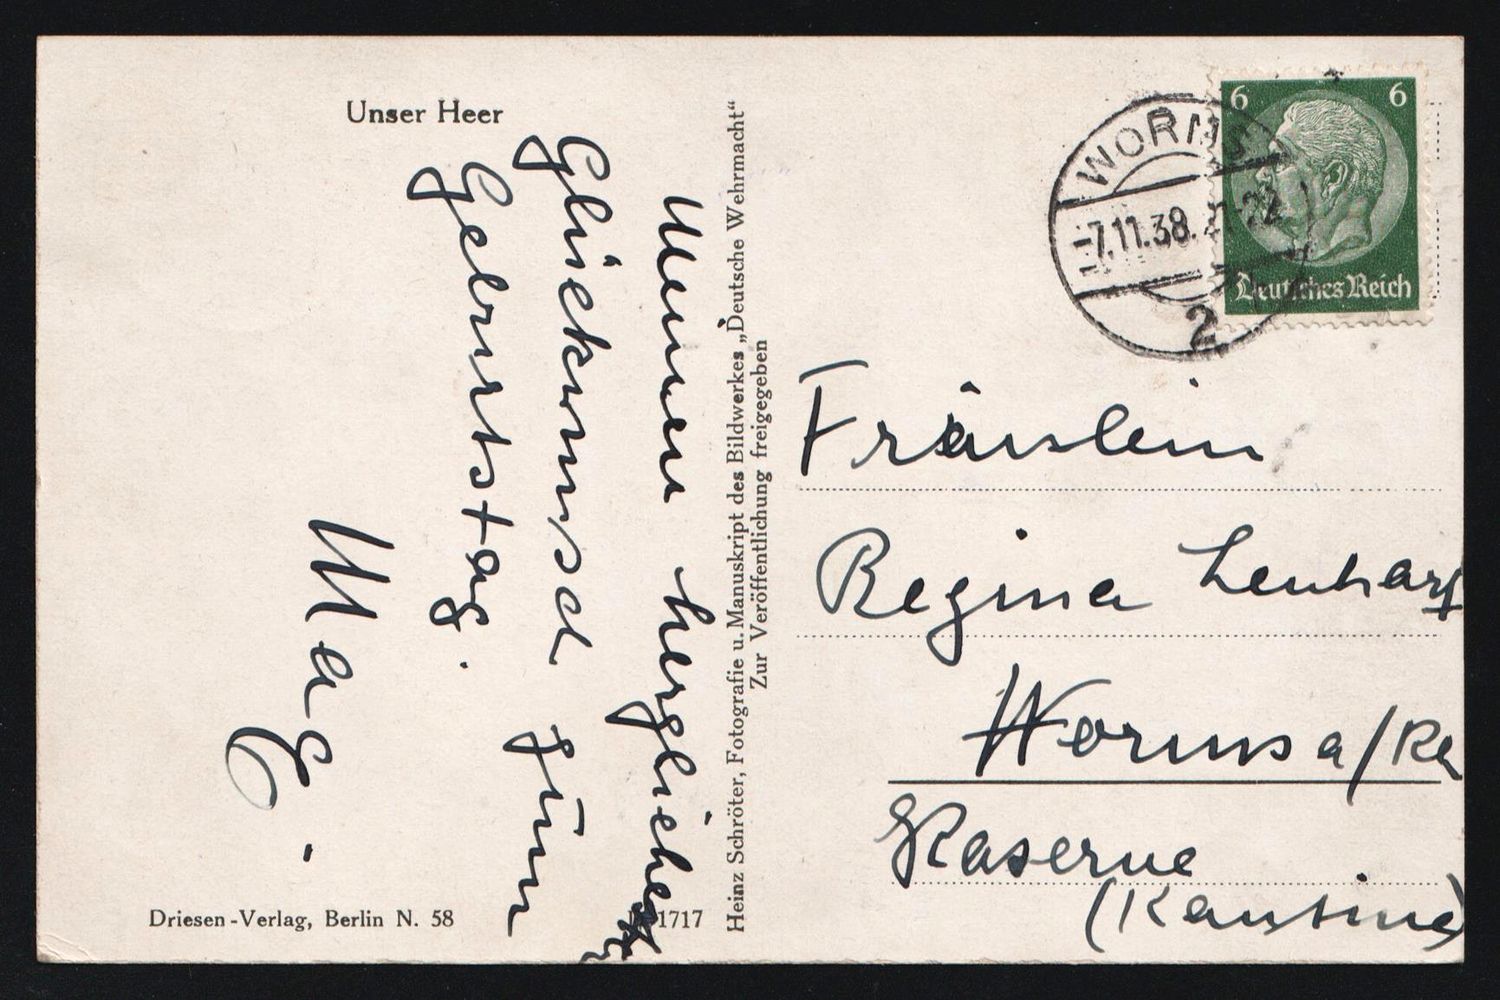 Unser Heer
Meinen herzlichen
Glückwunsch zum
Geburtstag.
Mag.
Driesen-Verlag, Berlin N. 58
1717
Heinz Schröter, Fotografie u. Manuskript des Bildwerkes „Deutsche Wehrmacht“
Zur Veröffentlichung freigegeben
WORMS
-7.11.38.
2
6 6
Deutsches Reich
Fräulein
Regina
Worms a/Rh
Kaserne
(Kantine)